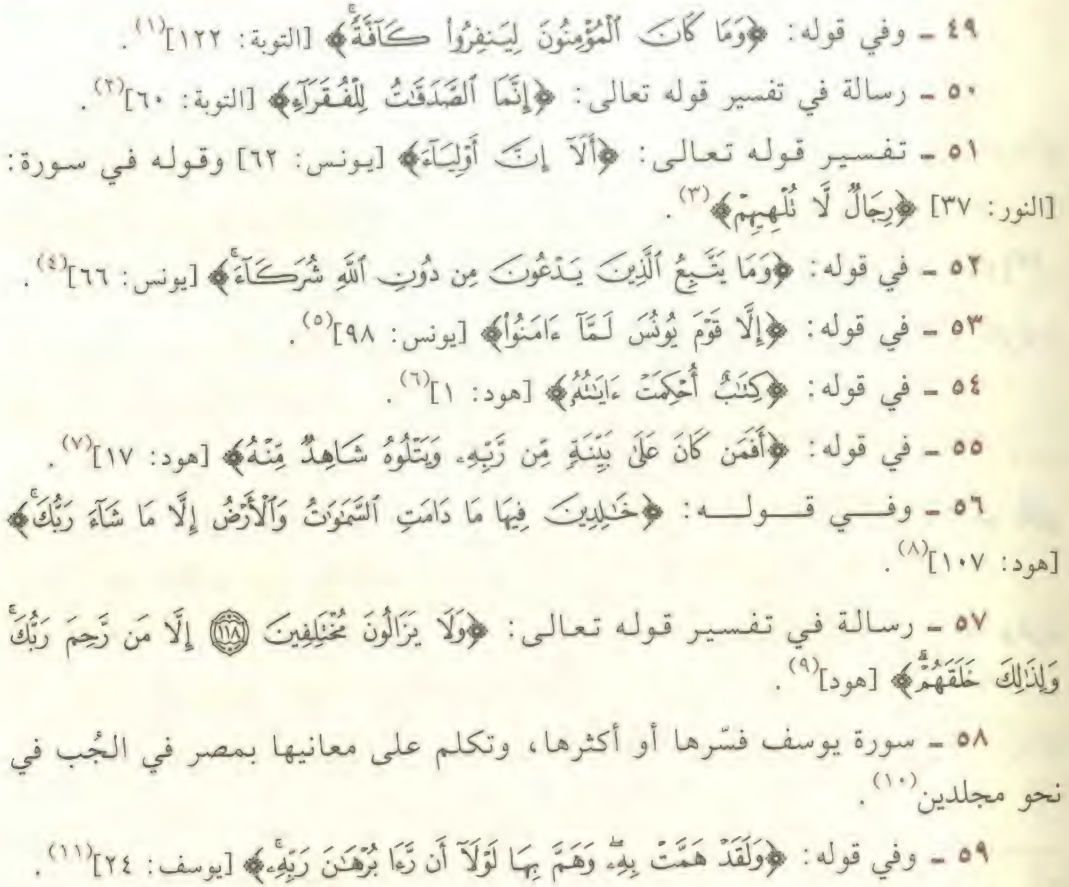 ٤٩ ـ وفي قوله: ﴿وَمَا كَانَ ٱلْمُؤْمِنُونَ لِيَنفِرُوا۟ كَآفَّةً ۚ﴾ [التوبة: ١٢٢](١).
٥٠ ـ رسالة في تفسير قوله تعالى: ﴿إِنَّمَا ٱلصَّدَقَٰتُ لِلْفُقَرَآءِ﴾ [التوبة: ٦٠](٢).
٥١ ـ تفسير قوله تعالى: ﴿أَلَآ إِنَّ أَوْلِيَآءَ﴾ [يونس: ٦٢] وقوله في سورة:
[النور: ٣٧] ﴿رِجَالٌ لَّا نُلْهِيهِمْ﴾(٣).
٥٢ ـ في قوله: ﴿وَمَا يَتَّبِعُ ٱلَّذِينَ يَدْعُونَ مِن دُونِ ٱللَّهِ شُرَكَآءَ ۚ﴾ [يونس: ٦٦](٤).
٥٣ ـ في قوله: ﴿إِلَّا قَوْمَ يُونُسَ لَمَّآ ءَامَنُوا۟﴾ [يونس: ٩٨](٥).
٥٤ ـ في قوله: ﴿كِتَٰبٌ أُحْكِمَتْ ءَايَٰتُهُۥ﴾ [هود: ١](٦).
٥٥ ـ في قوله: ﴿أَفَمَن كَانَ عَلَىٰ بَيِّنَةٍ مِّن رَّبِّهِۦ وَيَتْلُوهُ شَاهِدٌ مِّنْهُ﴾ [هود: ١٧](٧).
٥٦ ـ وفي قوله: ﴿خَٰلِدِينَ فِيهَا مَا دَامَتِ ٱلسَّمَٰوَٰتُ وَٱلْأَرْضُ إِلَّا مَا شَآءَ رَبُّكَ ۚ﴾
[هود: ١٠٧](٨).
٥٧ ـ رسالة في تفسير قوله تعالى: ﴿وَلَا يَزَالُونَ مُخْتَلِفِينَ ۝١١٨ إِلَّا مَن رَّحِمَ رَبُّكَ ۚ
وَلِذَٰلِكَ خَلَقَهُمْ ۗ﴾ [هود](٩).
٥٨ ـ سورة يوسف فسّرها أو أكثرها، وتكلم على معانيها بمصر في الجُب في
نحو مجلدين(١٠).
٥٩ ـ وفي قوله: ﴿وَلَقَدْ هَمَّتْ بِهِۦ ۖ وَهَمَّ بِهَا لَوْلَآ أَن رَّءَا بُرْهَٰنَ رَبِّهِۦ ۚ﴾ [يوسف: ٢٤](١١).